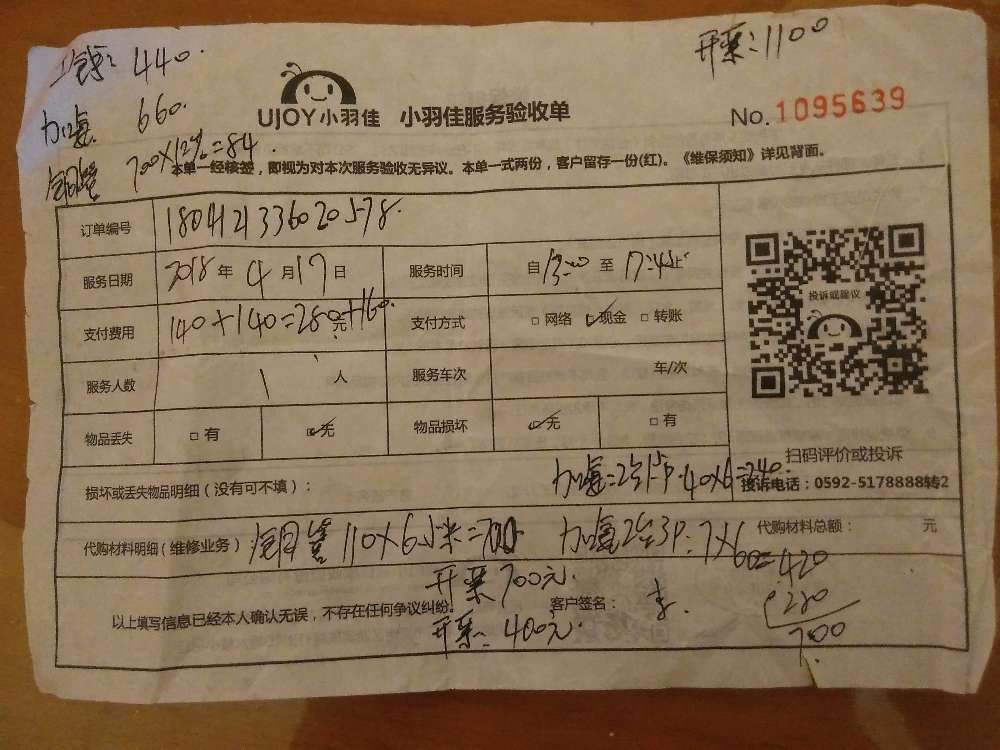 工钱: 440.
开票: 1100
加氟 660.
UJOY小羽佳 小羽佳服务验收单
No. 1095639
铜管 700×12%=84.
本单一经核签，即视为对本次服务验收无异议。本单一式两份，客户留存一份(红)。《维保须知》详见背面。
订单编号
服务日期 2018 年 4 月 17 日 服务时间 自 至 止
投诉或建议
支付费用 140+140=280元+160. 支付方式 □ 网络 ☑ 现金 □ 转账
服务人数 1 人 服务车次 车/次
物品丢失 □ 有 ☑ 无 物品损坏 ☑ 无 □ 有
扫码评价或投诉
损坏或丢失物品明细（没有可不填）： 加氟=2台 40×6=240.
投诉电话：0592-5178888转2
代购材料明细（维修业务） 铜管 110×6.5米=700 加氟2台3P: 7×60=420 代购材料总额： 元
开票 700元.
以上填写信息已经本人确认无误，不存在任何争议纠纷。 客户签名： 李.
280
开票: 400元.
700